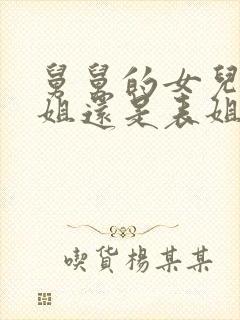 舅舅的女兒
姐還是表姐
喫貨楊某某